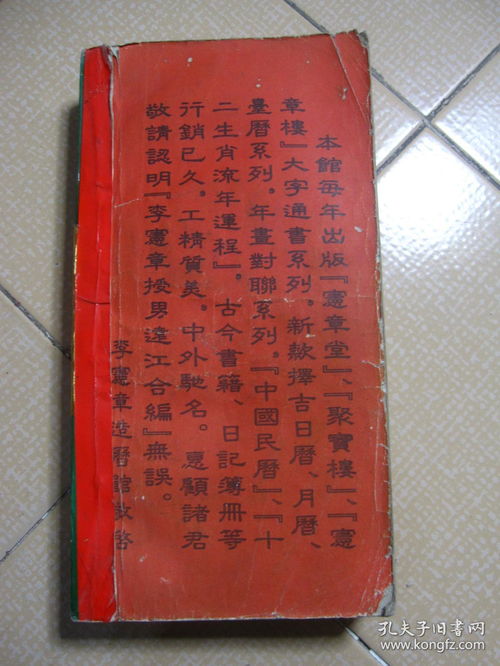 本館每年出版『憲章堂』、『聚寶樓』、『憲
章樓』大字通書系列。新款擇吉日曆、月曆、
臺曆系列。年畫對聯系列。『中國民曆』、『十
二生肖流年運程』。古今書籍、日記簿冊等
行銷已久。工精質美。中外馳名。惠顧諸君
敬請認明『李憲章授男遠江合編』無誤。
李憲章造曆館敬啓
孔夫子旧书网
www.kongfz.com